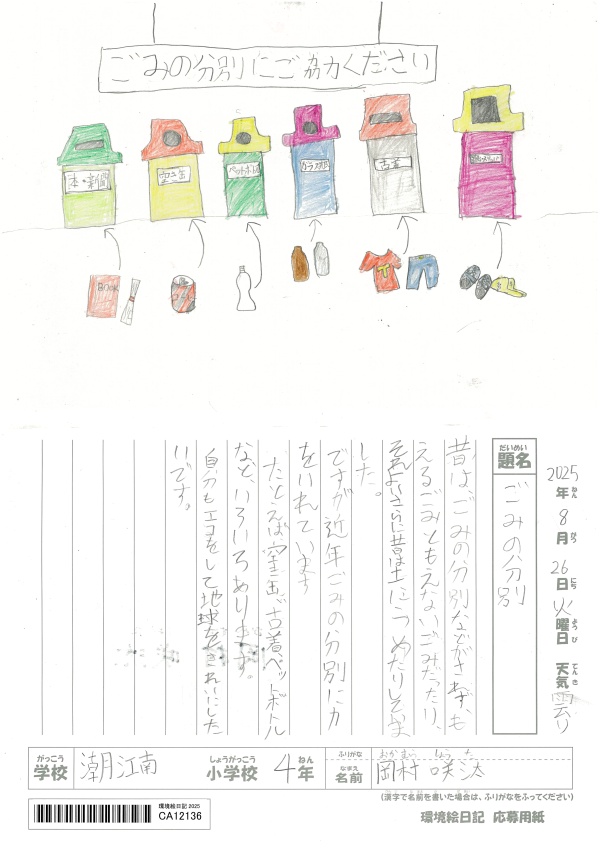 ごみの分別にご協力ください
本・新聞
空き缶
ペットボトル
ガラスびん
古着
BOOK
2025年ねん8月がつ26日にち火曜日ようび天気てんき曇り
だいめい
題名
ごみの分別
昔は、ごみの分別などがされず、も
えるごみともえないごみだったり、
それよりさらに昔は土にうめたりしてま
した。
ですが近年ごみの分別に力
をいれています
たとえば空き缶、古着ペットボトル
など、いろいろあります。
自分もエコをして地球をきれいにした
いです。
がっこう
学校
潮江南
しょうがっこう
小学校
4年ねん
ふりがな
おかむら しょうた
なまえ
名前
岡村 咲汰
(漢字で名前を書いた場合は、ふりがなをふってください)
環境絵日記 2025
CA12136
環境絵日記 応募用紙